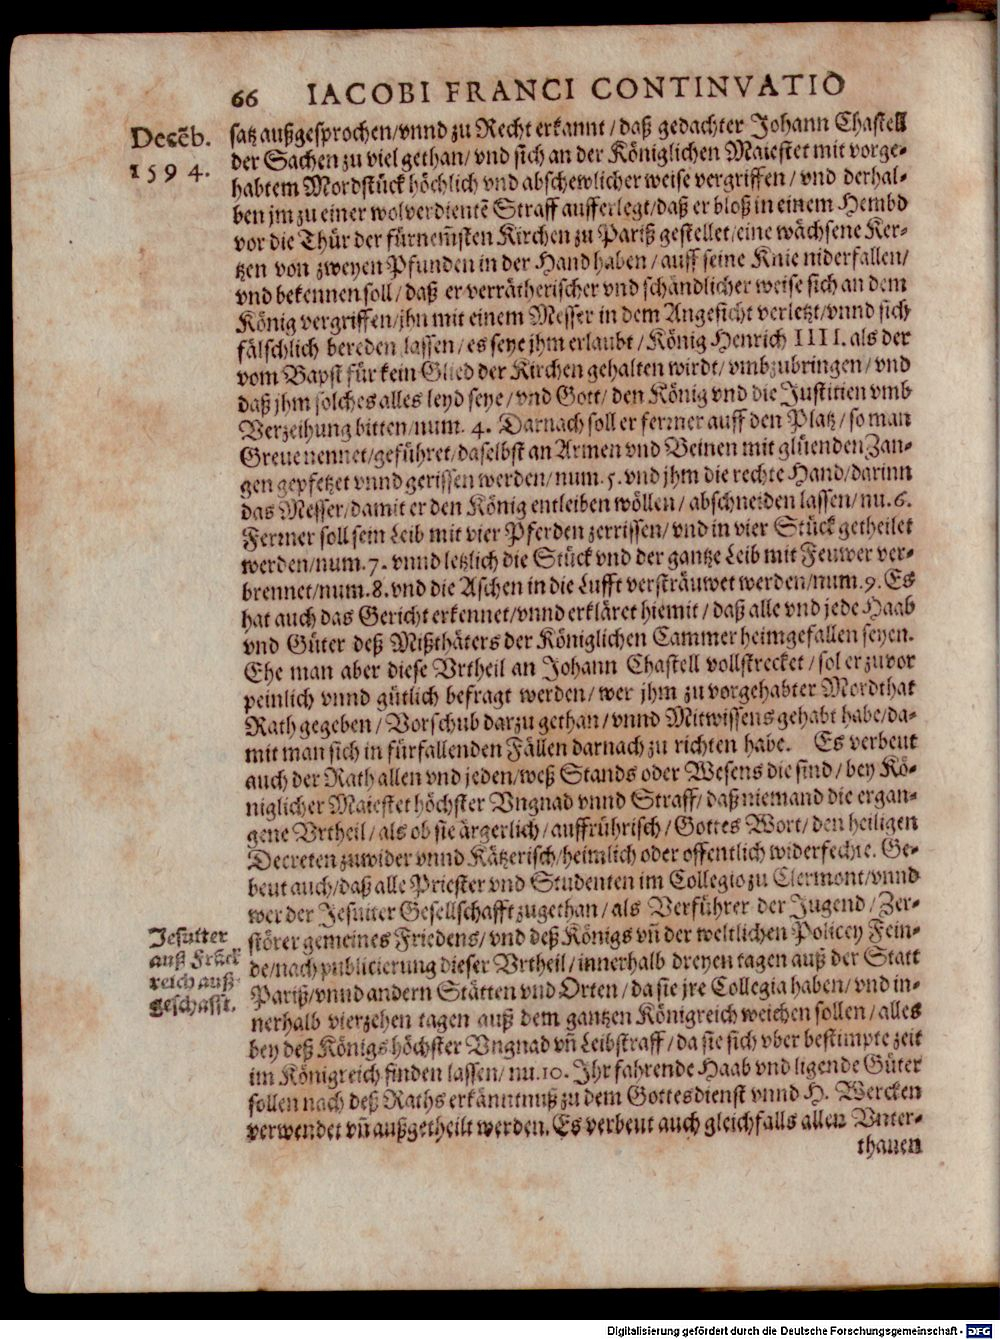 66 IACOBI FRANCI CONTINVATIO
Decẽb.
1594.
satz außgesprochen/vnnd zu Recht erkannt/daß gedachter Johann Chastell
der Sachen zu viel gethan/vnd sich an der Königlichen Maiestet mit vorge-
habtem Mordstück höchlich vnd abschewlicher weise vergriffen/vnd derhal-
ben jm zu einer wolverdientẽ Straff aufferlegt/daß er bloß in einem Hembd
vor die Thür der fürnem̃sten Kirchen zu Pariß gestellet/eine wächsene Ker-
tzen von zweyen Pfunden in der Hand haben/auff seine Knie niderfallen/
vnd bekennen soll/daß er verrätherischer vnd schändlicher weise sich an dem
König vergriffen/jhn mit einem Messer in dem Angesicht verletzt/vnnd sich
fälschlich bereden lassen/es seye jhm erlaubt/König Henrich IIII. als der
vom Bapst für kein Glied der Kirchen gehalten wirdt/vmbzubringen/vnd
daß jhm solches alles leyd seye/vnd Gott/den König vnd die Justitien vmb
Verzeihung bitten/num. 4. Darnach soll er ferrner auff den Platz/so man
Greue nennet/geführet/daselbst an Armen vnd Beinen mit glüenden Zan-
gen gepfetzet vnnd gerissen werden/num. 5. vnd jhm die rechte Hand/darinn
das Messer/damit er den König entleiben wöllen/abschneiden lassen/nu. 6.
Ferrner soll sein Leib mit vier Pferden zerrissen/vnd in vier Stück getheilet
werden/num. 7. vnnd letzlich die Stück vnd der gantze Leib mit Feuwer ver-
brennet/num. 8. vnd die Aschen in die Lufft versträuwet werden/num. 9. Es
hat auch das Gericht erkennet/vnnd erkläret hiemit/daß alle vnd jede Haab
vnd Güter deß Mißthäters der Königlichen Cammer heimgefallen seyen.
Ehe man aber diese Vrtheil an Johann Chastell vollstrecket/sol er zuvor
peinlich vnnd gütlich befragt werden/wer jhm zu vorgehabter Mordthat
Rath gegeben/Vorschub darzu gethan/vnnd Mitwissens gehabt habe/da-
mit man sich in fürfallenden Fällen darnach zu richten habe. Es verbeut
auch der Rath allen vnd jeden/weß Stands oder Wesens die sind/bey Kö-
niglicher Maiestet höchster Vngnad vnnd Straff/daß niemand die ergan-
gene Vrtheil/als ob sie ärgerlich/auffrührisch/Gottes Wort/den heiligen
Decreten zuwider vnnd Kätzerisch/heimlich oder offentlich widerfechte. Ge-
beut auch/daß alle Priester vnd Studenten im Collegio zu Clermont/vnnd
wer der Jesuiter Gesellschafft zugethan/als Verführer der Jugend/Zer-
störer gemeines Friedens/vnd deß Königs vñ der weltlichen Policey Fein-
de/nach publicierung dieser Vrtheil/innerhalb dreyen tagen auß der Statt
Pariß/vnnd andern Stätten vnd Orten/da sie jre Collegia haben/vnd in-
nerhalb vierzehen tagen auß dem gantzen Königreich weichen sollen/alles
bey deß Königs höchster Vngnad vñ Leibstraff/da sie sich vber bestimpte zeit
im Königreich finden lassen/nu. 10. Ihr fahrende Haab vnd ligende Güter
sollen nach deß Raths erkänntnuß zu dem Gottesdienst vnnd H. Wercken
verwendet vñ außgetheilt werden. Es verbeut auch gleichfalls allen Vnter-
thanen
Jesuiter
auß Frãck
reich auß-
geschafft.
Digitalisierung gefördert durch die Deutsche Forschungsgemeinschaft - DFG